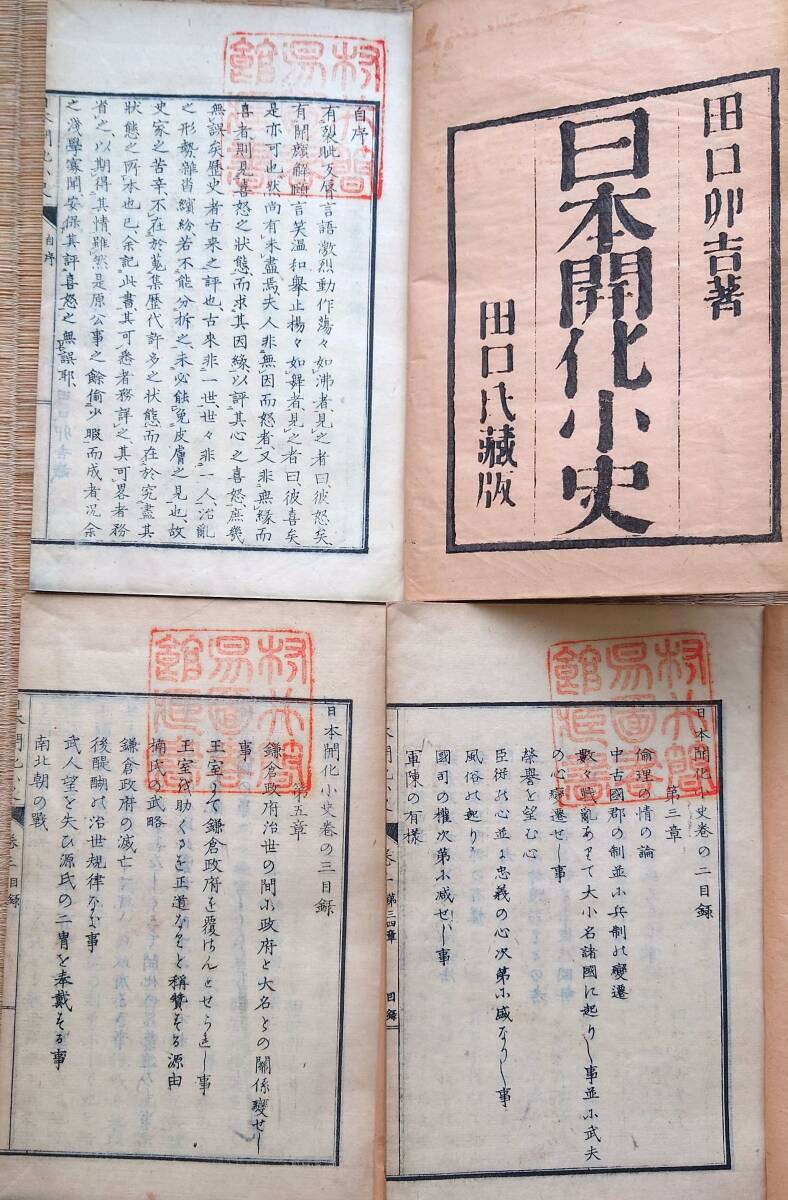 田口卯吉著
日本開化小史
田口氏藏版
自序
有裂眦反唇言語激烈動作蕩々如沸者見之者曰彼怒矣
有開顔解頤言笑溫和擧止揚々如舞者見之者曰彼喜矣
是亦可也然尚有未盡焉夫人非無因而怒者又非無緣而
喜者則見喜怒之狀態而求其因緣以評其心之喜怒庶幾
無誤矣歷史者古來之評也古來非一世世々非一人治亂
之形勢雜沓繽紛若不能分拆之未必能免皮膚之見也故
史家之苦辛不在於蒐集歷代許多之狀態而在於究盡其
狀態之所本也已余記此書其可悉者務詳之其可畧者務
省之以期得其情雖然是原公事之餘偷少暇而成者況余
之淺學寡聞安保其評喜怒之無誤耶
日本開化小史
自序
日本開化小史卷の二目録
第三章
倫理の情の論
中古國郡の制並小兵制の變遷
數々戰亂ありて大小名諸國に起りし事並小武夫
の心變遷せし事
榮譽を望む心
臣從の心並に忠義の心次第に盛なりし事
風俗の起り
國司の權次第小减せし事
軍陳の有樣
第三四章
目録
日本開化小史卷の三目録
第五章
鎌倉政府治世の間小政府と大名との關係變せし
事
王室にて鎌倉政府を覆さんとせられし事
王室を助くるを正道なりと稱贊する源由
楠氏の武略
鎌倉政府の滅亡
後醍醐の治世規律なき事
武人望を失ひ源氏の二胄を奉戴する事
南北朝の戰
目録